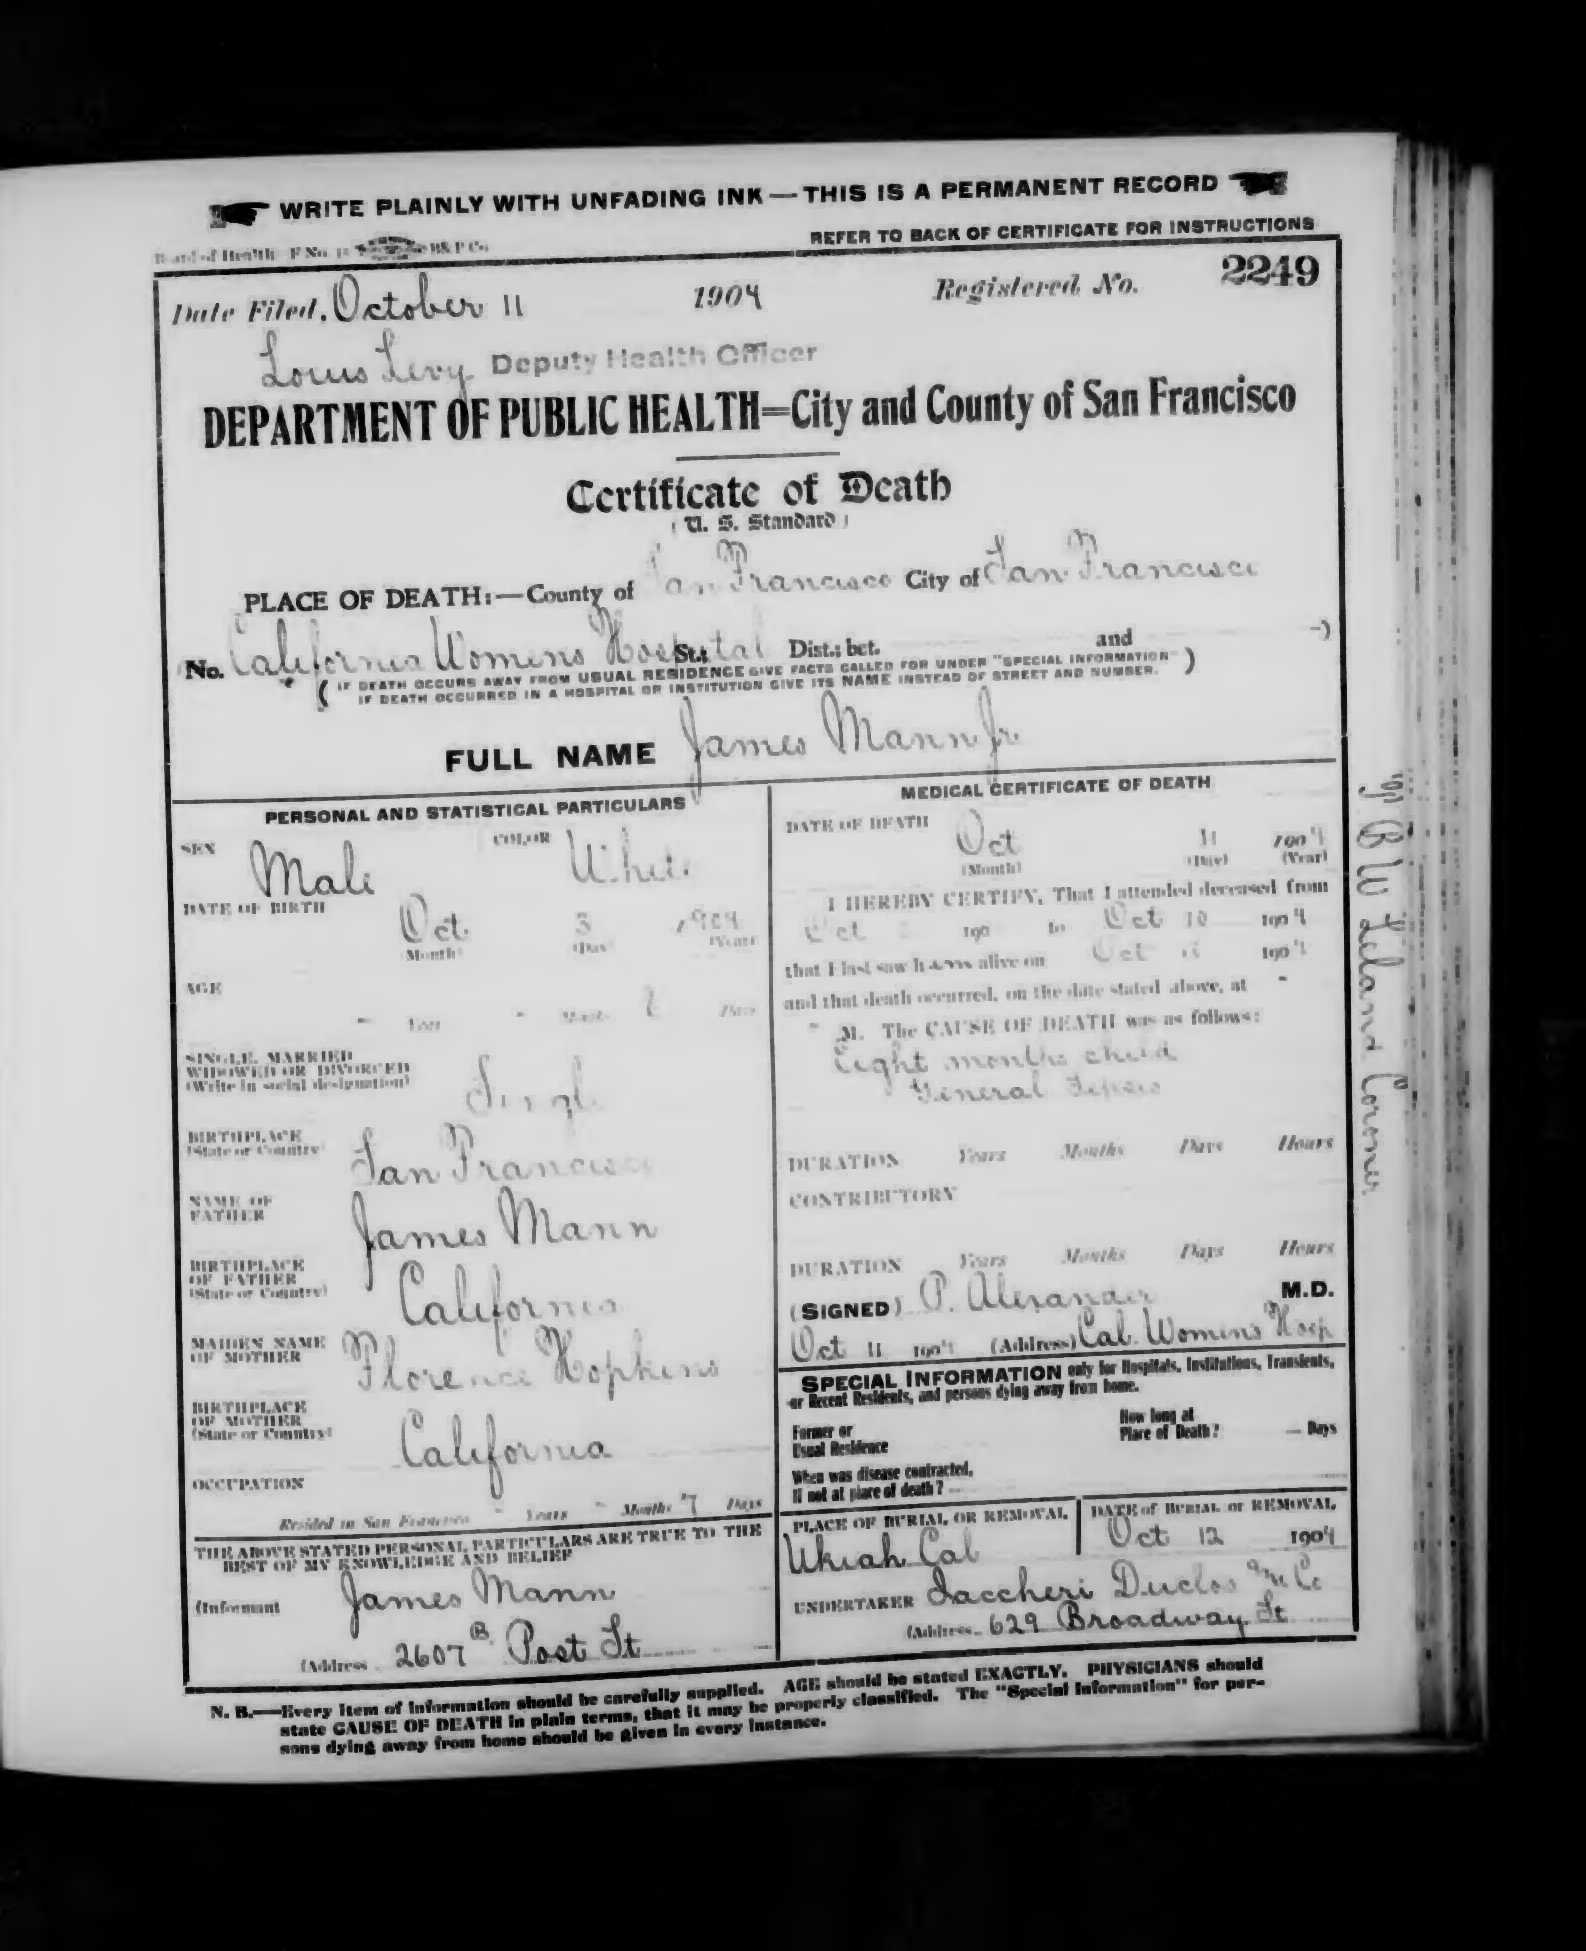 WRITE PLAINLY WITH UNFADING INK — THIS IS A PERMANENT RECORD
Board of Health F No. B&P Co.
REFER TO BACK OF CERTIFICATE FOR INSTRUCTIONS
Date Filed, October 11 1904 Registered No. 2249
Louis Levy Deputy Health Officer
DEPARTMENT OF PUBLIC HEALTH=City and County of San Francisco
Certificate of Death
(U. S. Standard)
PLACE OF DEATH:—County of San Francisco City of San Francisco
No. California Womens Hospital St.; Dist.; bet. and )
( IF DEATH OCCURS AWAY FROM USUAL RESIDENCE GIVE FACTS CALLED FOR UNDER "SPECIAL INFORMATION" )
IF DEATH OCCURRED IN A HOSPITAL OR INSTITUTION GIVE ITS NAME INSTEAD OF STREET AND NUMBER.
FULL NAME James Mann Jr.
PERSONAL AND STATISTICAL PARTICULARS
SEX Male COLOR White
DATE OF BIRTH Oct 3 1904
(Month) (Day) (Year)
AGE - Years - Months Days
SINGLE, MARRIED
WIDOWED OR DIVORCED
(Write in social designation) Single
BIRTHPLACE
(State or Country) San Francisco
NAME OF
FATHER James Mann
BIRTHPLACE
OF FATHER
(State or Country) California
MAIDEN NAME
OF MOTHER Florence Hopkins
BIRTHPLACE
OF MOTHER
(State or Country) California
OCCUPATION
Resided in San Francisco - Years - Months 7 Days
THE ABOVE STATED PERSONAL PARTICULARS ARE TRUE TO THE
BEST OF MY KNOWLEDGE AND BELIEF
(Informant James Mann
(Address 2607 B. Post St
MEDICAL CERTIFICATE OF DEATH
DATE OF DEATH Oct 11 1904
(Month) (Day) (Year)
I HEREBY CERTIFY, That I attended deceased from
Oct 190 to Oct 10 1904
that I last saw him alive on Oct 1904
and that death occurred, on the date stated above, at -
- M. The CAUSE OF DEATH was as follows:
Eight months child
General
DURATION Years Months Days Hours
CONTRIBUTORY
DURATION Years Months Days Hours
(SIGNED) P. Alexander M.D.
Oct 11 1904 (Address) Cal. Womens Hosp
SPECIAL INFORMATION only for Hospitals, Institutions, Transients,
or Recent Residents, and persons dying away from home.
Former or
Usual Residence
How long at
Place of Death? — Days
When was disease contracted,
If not at place of death?
PLACE OF BURIAL OR REMOVAL
Ukiah Cal
DATE of BURIAL or REMOVAL
Oct 12 1904
UNDERTAKER Iaccheri Duclos and Co
(Address 629 Broadway St
N. B.—Every item of information should be carefully supplied. AGE should be stated EXACTLY. PHYSICIANS should
state CAUSE OF DEATH in plain terms, that it may be properly classified. The "Special Information" for per-
sons dying away from home should be given in every instance.
B W Leland Coroner